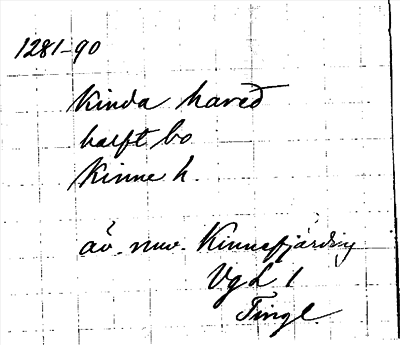 1281-90
Kinda hæreð
halft bo
Kinne h.
äv. nuv. Kinnefjärding
VgL 1
Tingl.